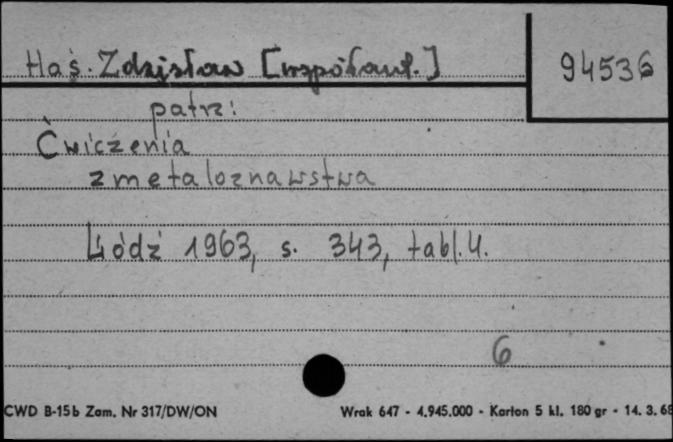 Haś. Zdzisław [współaut.]
94536
patrz:
Ćwiczenia
z metaloznawstwa
Łódź 1963, s. 343, tabl. 4.
6
CWD B-15b Zam. Nr 317/DW/ON
Wrak 647 - 4.945.000 - Karton 5 kl. 180 gr - 14. 3. 68